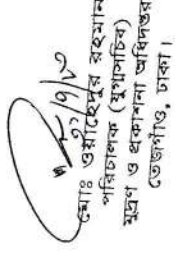 মোঃ ওয়াহেদুর রহমান
পরিচালক (যুগ্মসচিব)
মুদ্রণ ও প্রকাশনা অধিদপ্তর
তেজগাঁও, ঢাকা।